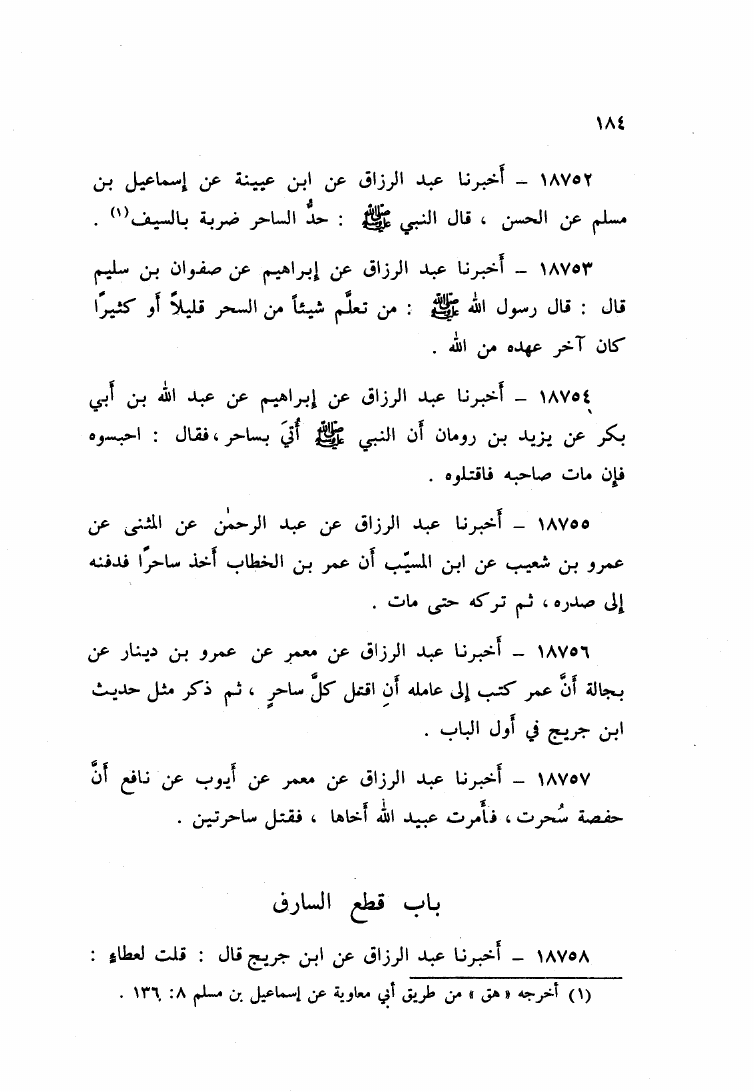 ١٨٤
١٨٧٥٢ – أخبرنا عبد الرزاق عن ابن عيينة عن إسماعيل بن
مسلم عن الحسن ، قال النبي ﷺ : حدُّ الساحر ضربة بالسيف(١) .
١٨٧٥٣ – أخبرنا عبد الرزاق عن إبراهيم عن صفوان بن سليم
قال : قال رسول الله ﷺ : من تعلَّم شيئاً من السحر قليلاً أو كثيرًا
كان آخر عهده من الله .
١٨٧٥٤ – أخبرنا عبد الرزاق عن إبراهيم عن عبد الله بن أبي
بكر عن يزيد بن رومان أن النبي ﷺ أُتيَ بساحر ، فقال : احبسوه
فإن مات صاحبه فاقتلوه .
١٨٧٥٥ – أخبرنا عبد الرزاق عن عبد الرحمٰن عن المثنى عن
عمرو بن شعيب عن ابن المسيّب أن عمر بن الخطاب أخذ ساحرًا فدفنه
إلى صدره ، ثم تركه حتى مات .
١٨٧٥٦ – أخبرنا عبد الرزاق عن معمر عن عمرو بن دينار عن
بجالة أنَّ عمر كتب إلى عامله أنِ اقتل كلَّ ساحرٍ ، ثم ذكر مثل حديث
ابن جريج في أول الباب .
١٨٧٥٧ – أخبرنا عبد الرزاق عن معمر عن أيوب عن نافع أنَّ
حفصة سُحرت ، فأمرت عبيد الله أخاها ، فقتل ساحرتين .
باب قطع السارق
١٨٧٥٨ – أخبرنا عبد الرزاق عن ابن جريج قال : قلت لعطاءٍ :
(١) أخرجه « هق » من طريق أبي معاوية عن إسماعيل بن مسلم ٨: ١٣٦ .